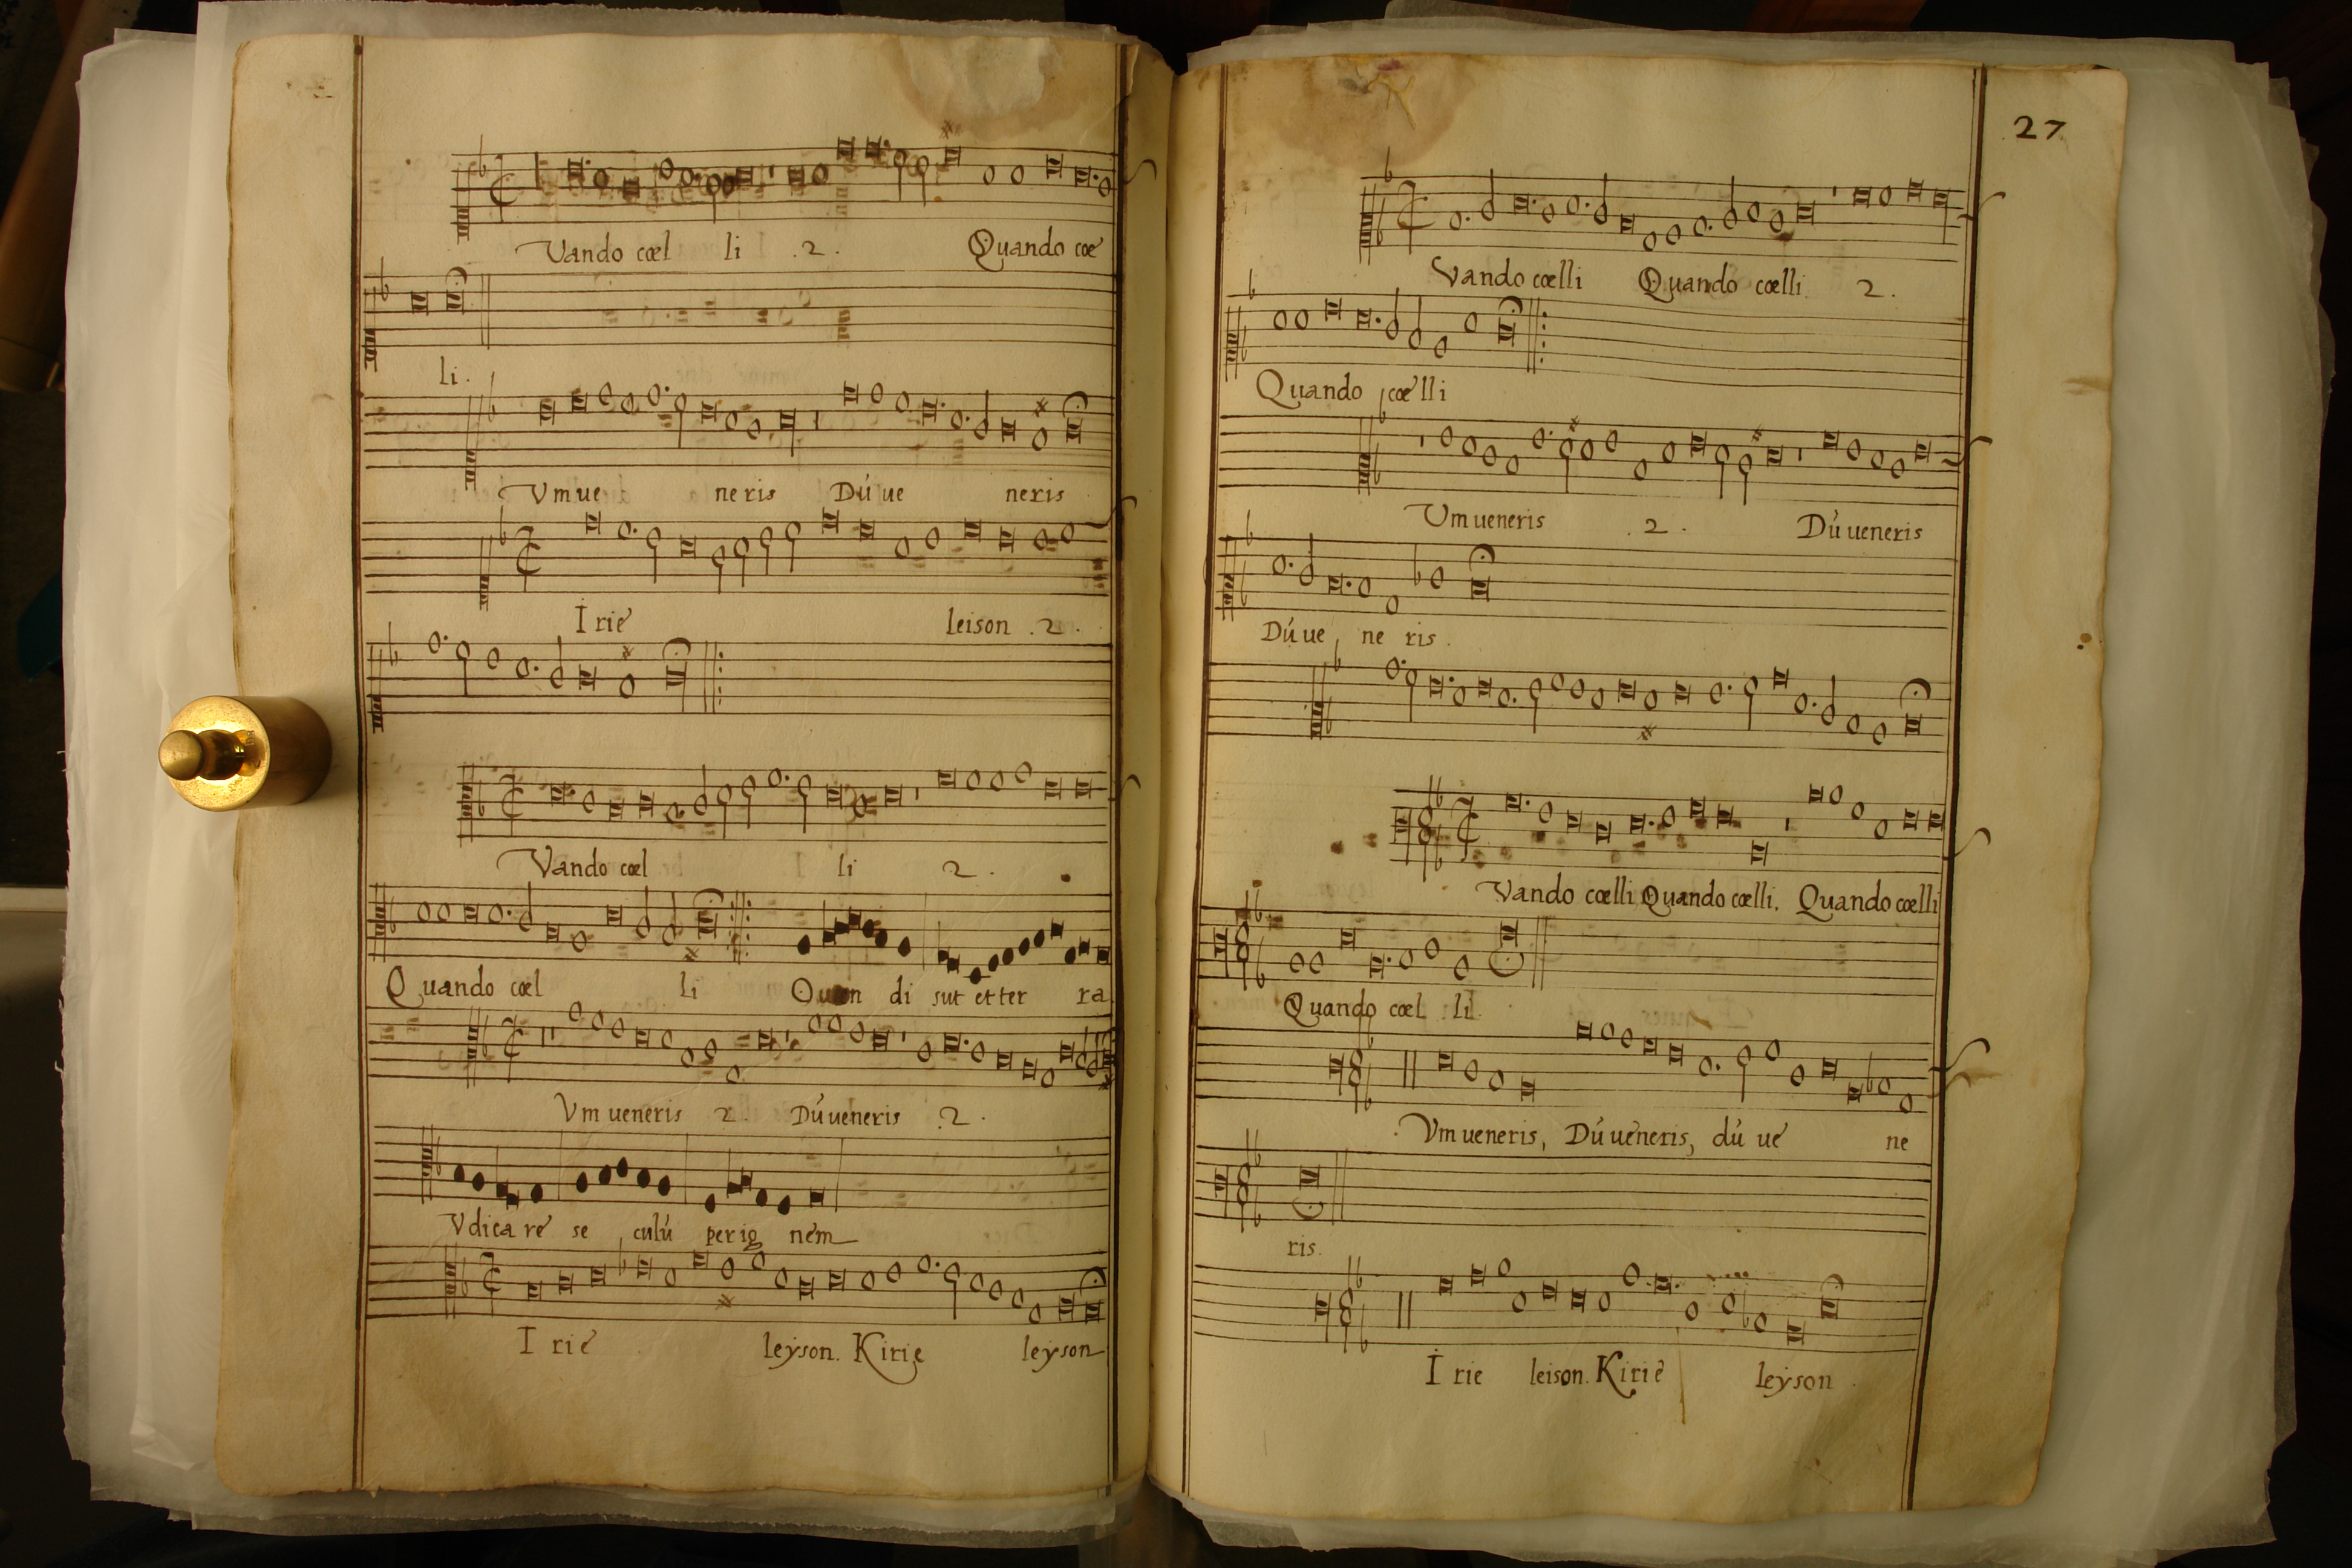 Vando cœl li .2. Quando cœ
li.
Vm ue neris Dú ue neris
I rie leison .2.
Vando cœl li 2.
Quando cœl li Quan di sut et ter ra
Vm ueneris 2. Dú ueneris .2.
Vdica re se culú per ig nem
I rie leyson. Kirie leyson
27
Vando cœlli Quando cœlli 2.
Quando cœlli
Vm ueneris .2. Dú ueneris
Dú ue ne ris.
Vando cœlli Quando cœlli. Quando cœlli
Quando cœl li.
Vm ueneris, Dú ueneris, dú ue ne
ris.
I rie leison. Kirie leyson